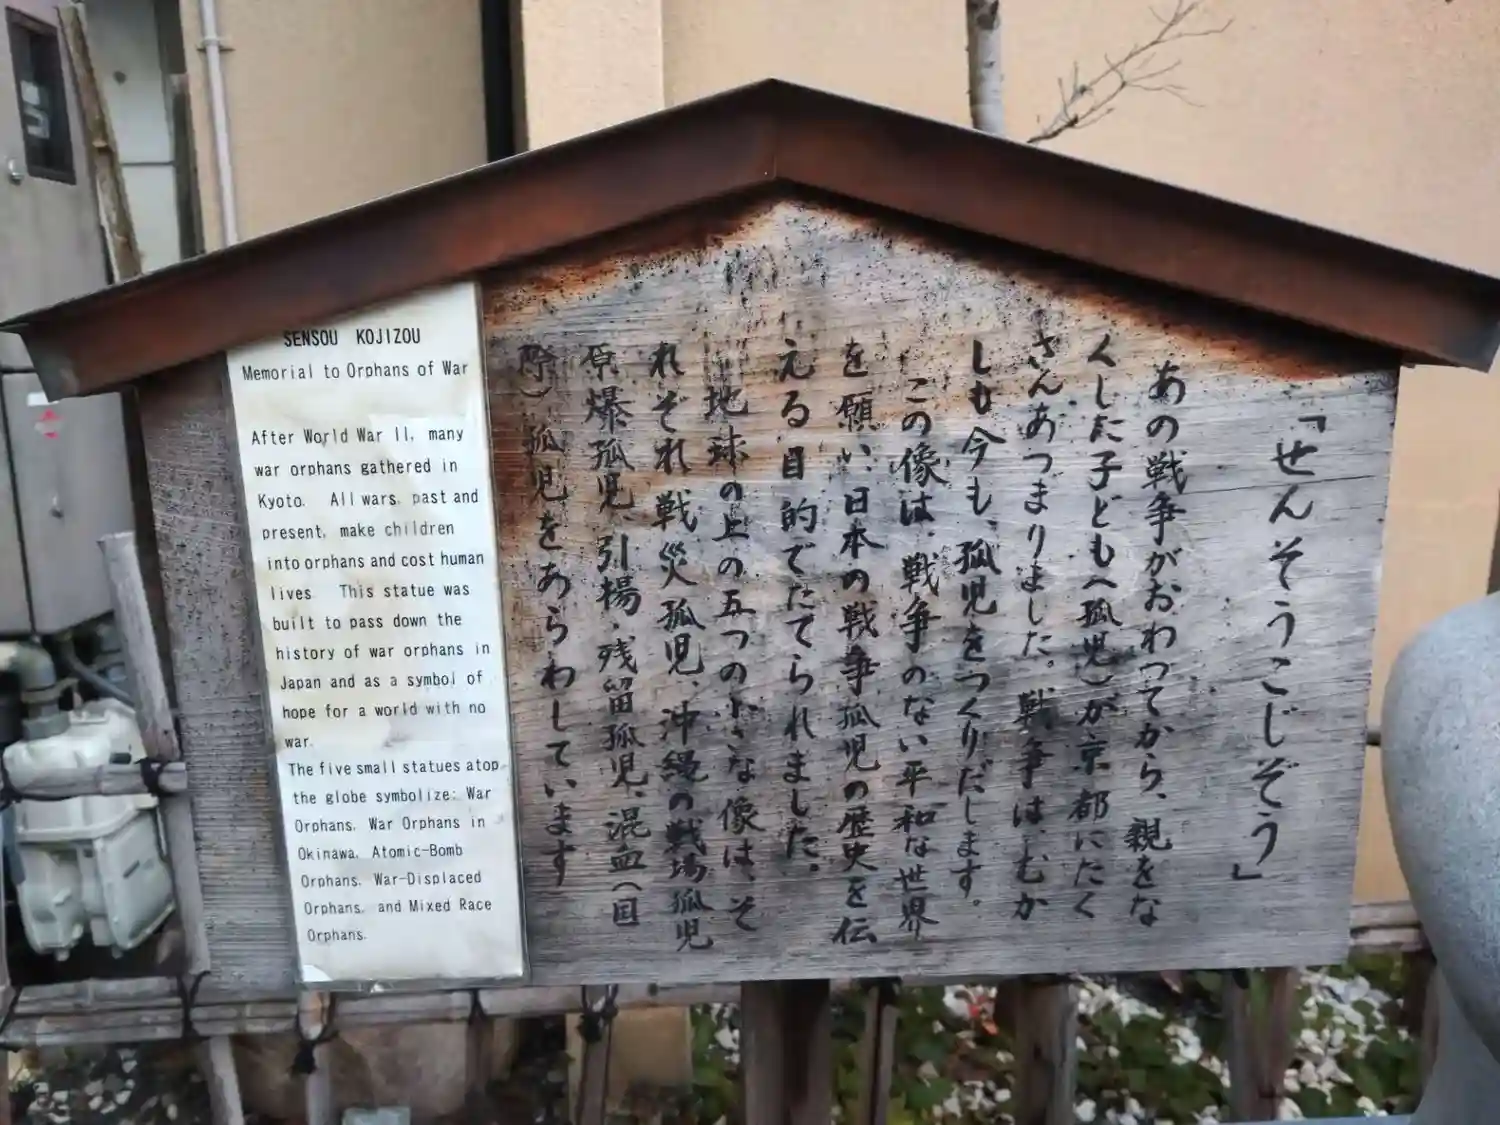 「せんそうこじぞう」
あの戦争がおわってから、親をな
くした子ども(孤児)が京都にたく
さんあつまりました。戦争は、むか
しも今も、孤児をつくりだします。
この像は、戦争のない平和な世界
を願い、日本の戦争孤児の歴史を伝
える目的でたてられました。
地球の上の五つの小さな像は、そ
れぞれ戦災孤児、沖縄の戦場孤児
原爆孤児、引揚・残留孤児、混血(国
際)孤児をあらわしています
SENSOU KOJIZOU
Memorial to Orphans of War
After World War II, many
war orphans gathered in
Kyoto. All wars, past and
present, make children
into orphans and cost human
lives. This statue was
built to pass down the
history of war orphans in
Japan and as a symbol of
hope for a world with no
war.
The five small statues atop
the globe symbolize: War
Orphans, War Orphans in
Okinawa, Atomic-Bomb
Orphans, War-Displaced
Orphans, and Mixed Race
Orphans.